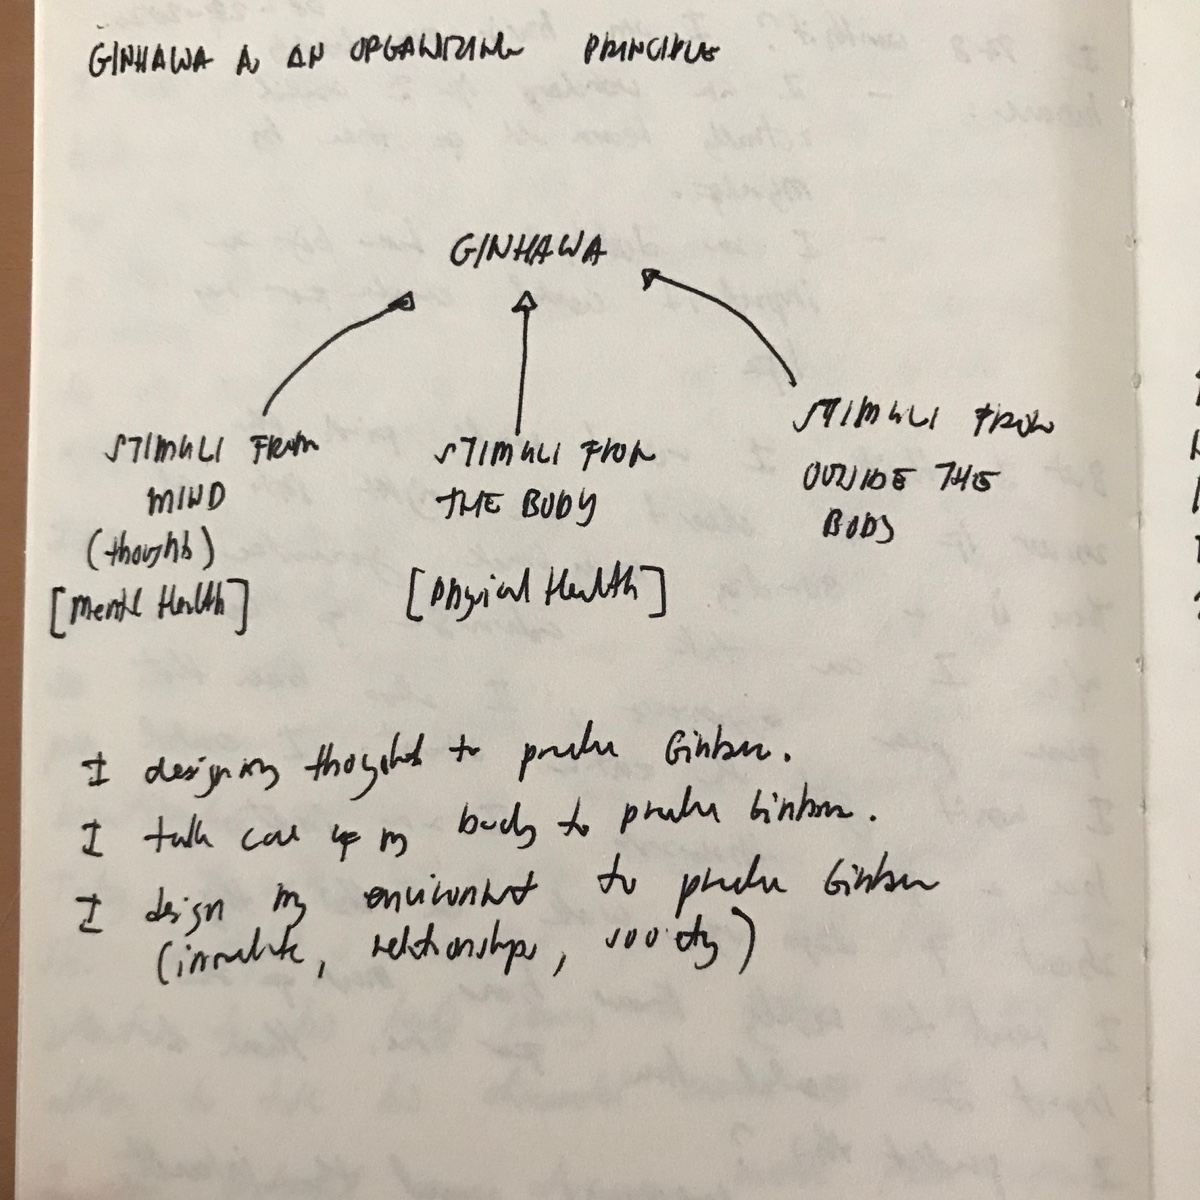 GINHAWA AS AN ORGANIZING PRINCIPLE
GINHAWA
STIMULI FROM
MIND
(thoughts)
[Mental Health]
STIMULI FROM
THE BODY
[Physical Health]
STIMULI FROM
OUTSIDE THE
BODY
I designing thoughts to produce Ginhawa.
I take care of my body to produce Ginhawa.
I design my environment to produce Ginhawa
(immediate, relationships, society)